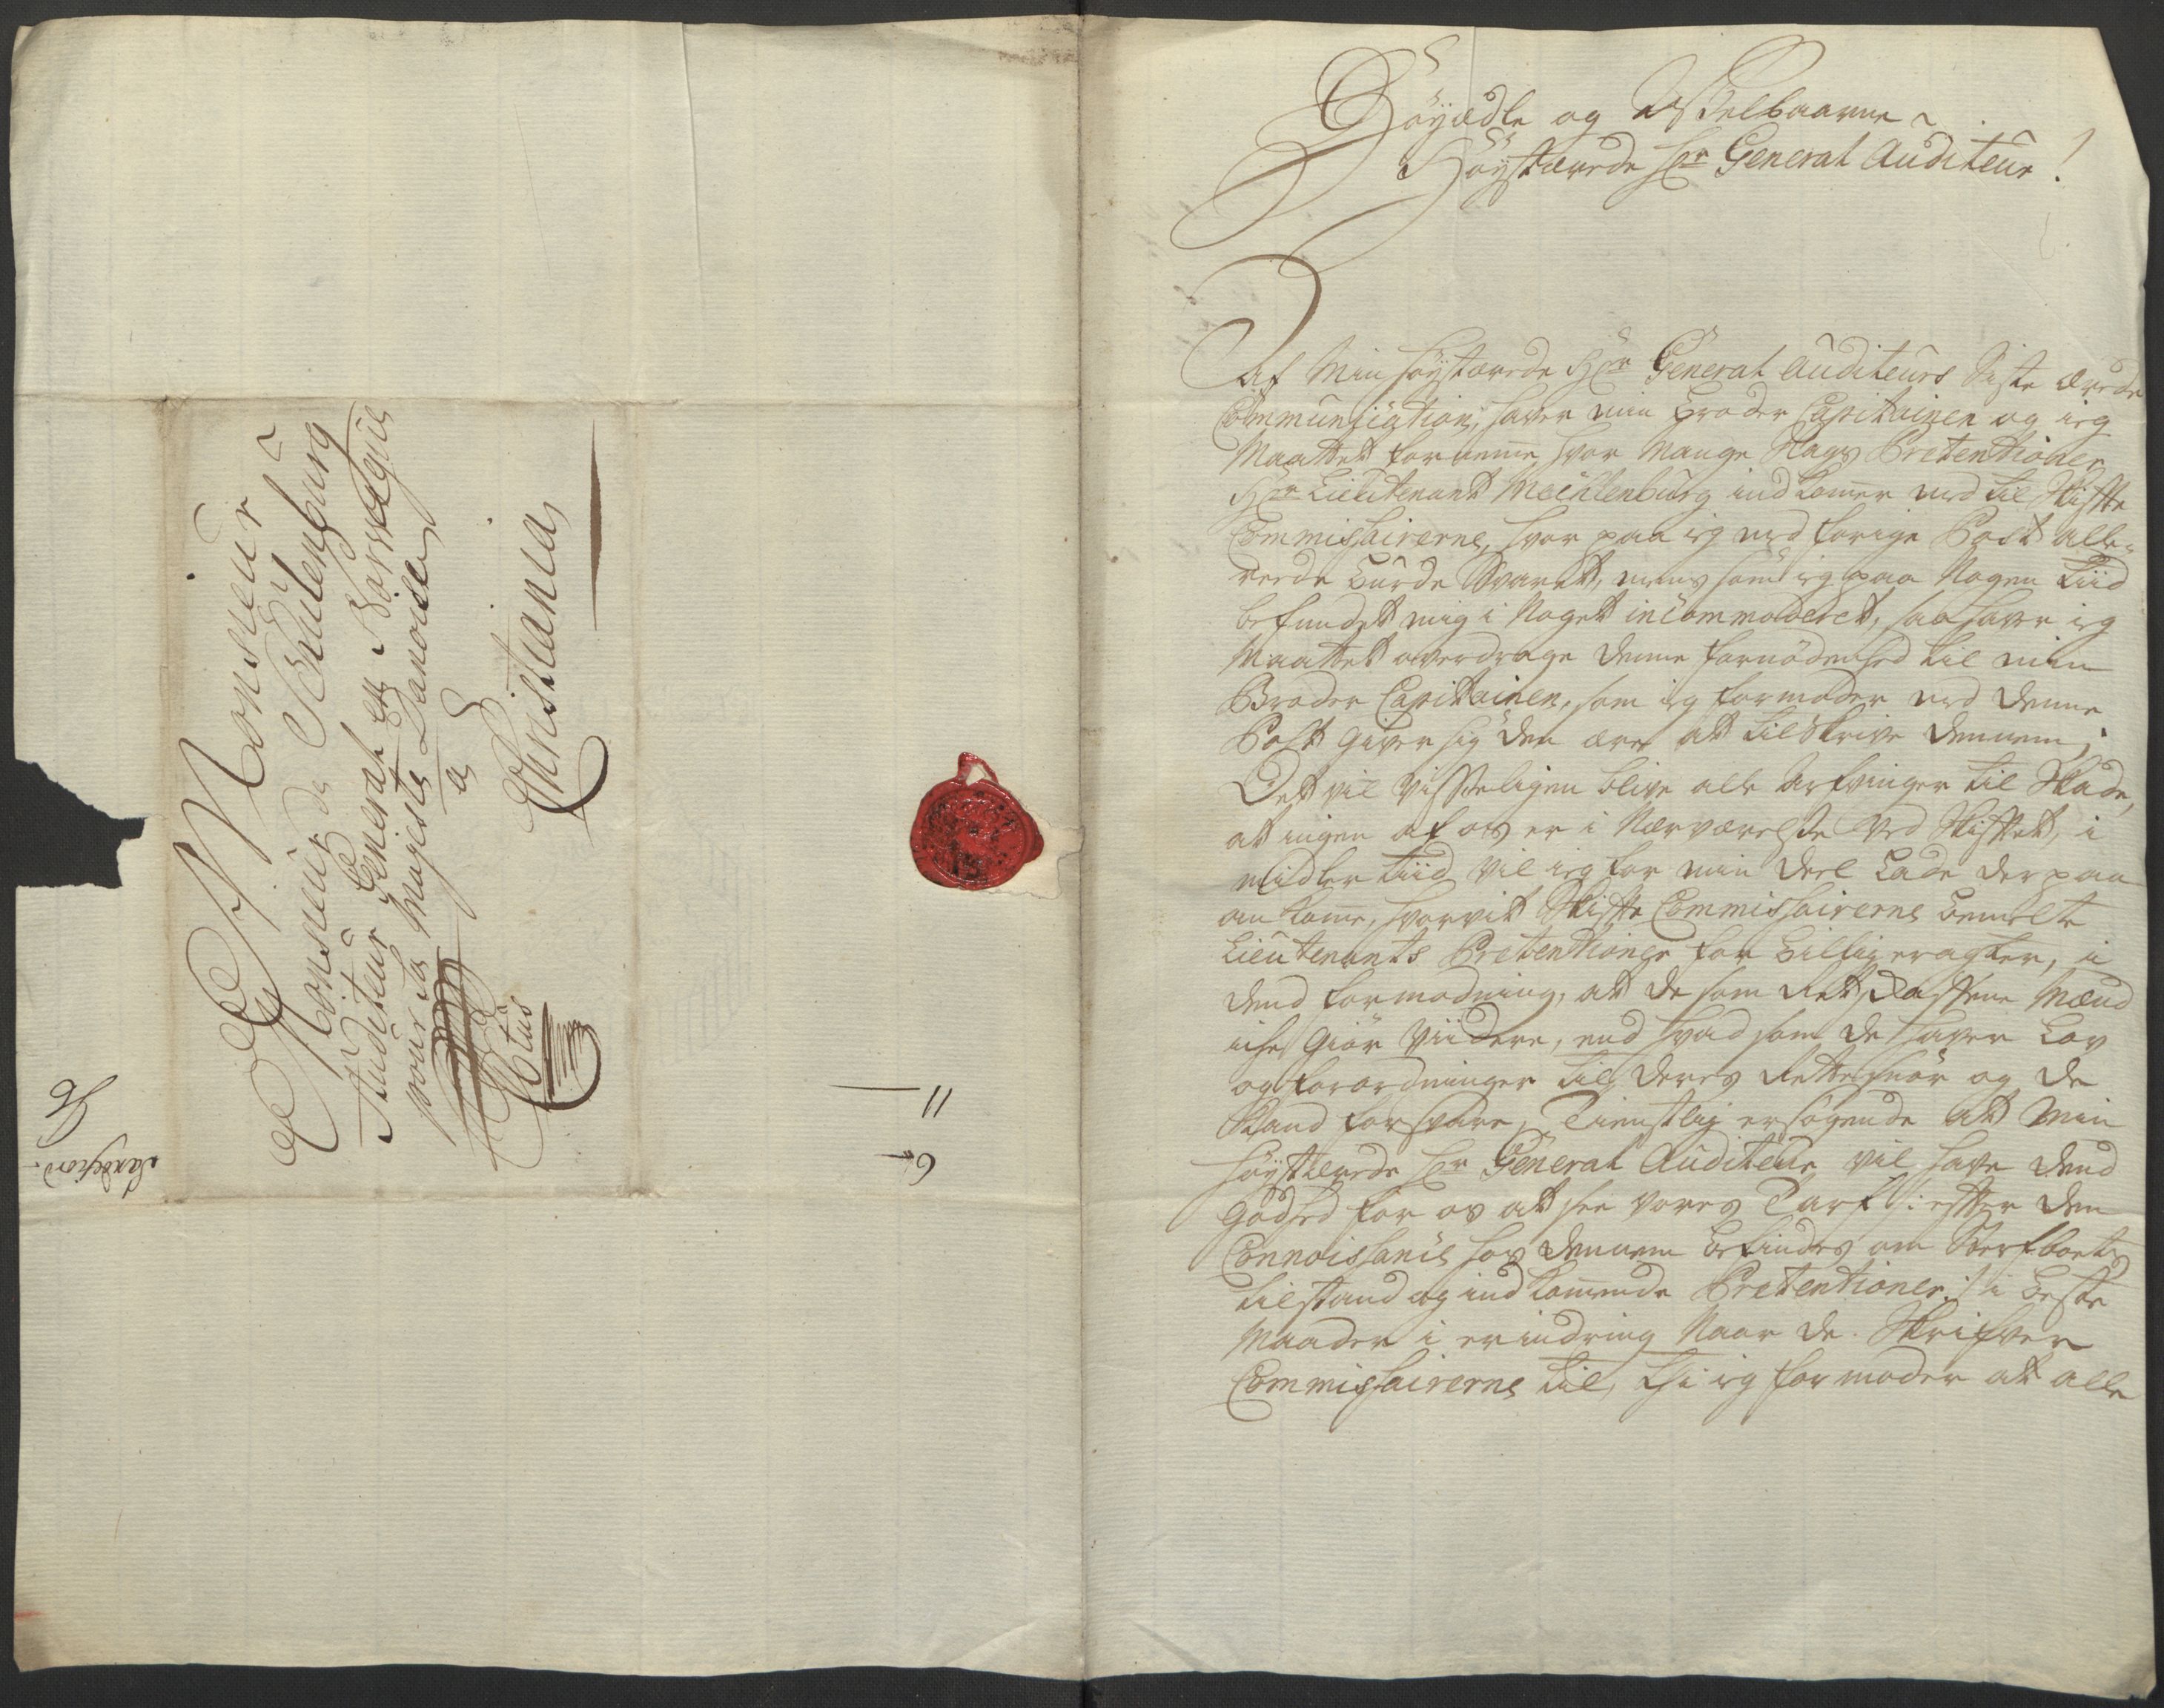 A Monsieur
Monsieur de Schulenburg
Auditeur General en Norwegue
pour Sa Majesté Danoise
a
Christiania
Cito
Laurdefiord
11
6
Höyædle og Velbaarne
Höystærede Hr General Auditeur!
Af Min höystærede Hr General Auditeurs Siste ærede
Communication, haver min Broder Capitainen og ieg
Maattet fornemme hvor Mange Slags Pretentioner
Hr Lieutenant Mechlenburg indkomer med til Skifte
Commissairerne, hvor paa ieg med forige Post alle-
rede burde Svaret, mens som ieg paa Nogen Tiid
befundet mig i Noget incommoderet, saa haver ieg
Maattet overdrage denne fornödenhed til min
Broder Capitainen, som ieg formoder med denne
Post giver sig den ære at tilskrive dennem;
Det vil visseligen blive alle Arfvinger til Skade,
at ingen af os er i Nærværelse ved Skiftet, i
midlertiid vil ieg for min deel lade der paa
ankome, hvorvit Skifte Commissairerne bemelte
Lieutenants Pretentioner for billig eragter, i
dend formodning, at de som Retsdafne Mænd
icke giör viidere, end hvad som de haver Lov
og forordninger til deres Rettesnör og de
kand forsvare, Tienstlig ersögende at Min
höystærede Hr General Auditeur vil have dend
godhed for os at see vores Tarf /: efter den
Connoissance hos dennem befindes om Sterfboets
tilstand og indkomende Pretentioner :/ i beste
Maader i erindring Naar de Skrifver
Commissairerne til, thi ieg formoder at alle